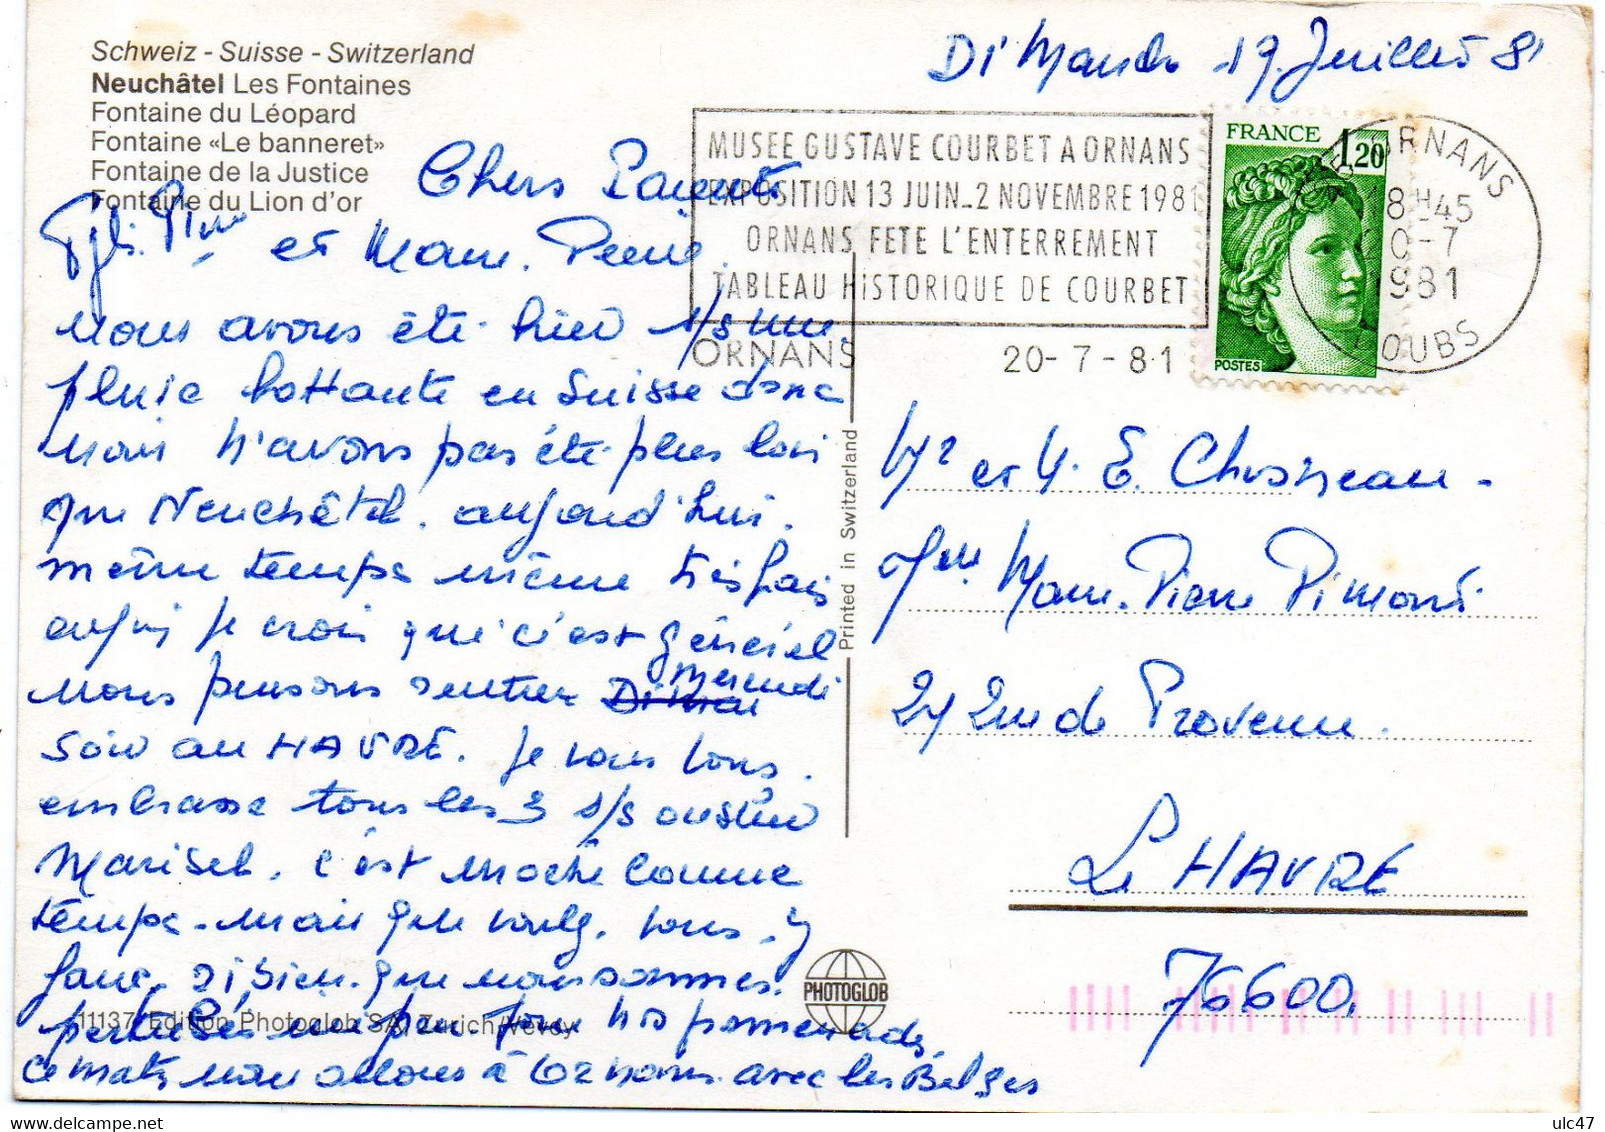 Schweiz - Suisse - Switzerland
Neuchâtel Les Fontaines
Fontaine du Léopard
Fontaine «Le banneret»
Fontaine de la Justice
Fontaine du Lion d'or
DiManche 19. Juillet 81
MUSEE GUSTAVE COURBET A ORNANS
EXPOSITION 13 JUIN_2 NOVEMBRE 1981
ORNANS FETE L'ENTERREMENT
TABLEAU HISTORIQUE DE COURBET
ORNANS 20-7-81
FRANCE 1,20
POSTES
ORNANS
18H45
20-7
1981
DOUBS
Chers Parents
et Mam.
nous avons été hier s/s une
pluie battante en Suisse donc
nous n'avons pas été plus loin
que Neuchâtel. aujourd'hui.
même temps même très frais
enfin je crois que c'est général
nous pensons rentrer Mercredi
Soir au HAVRE. Je vous tous.
embrasse tous les 3 s/s oublier
Marisel. c'est moche comme
temps. mais que voulez. vous. y
faire. si bien. que nous sommes.
perturbés un peu pour nos promenades.
ce matin nous allons à Ornans. avec les Belges
Printed in Switzerland
11137 Edition Photoglob SA, Zürich/Vevey
PHOTOGLOB
Mr et M. E.
Mam. Pierre Pimont.
27 Rue de Provence.
Le HAVRE
76600.
ulc47